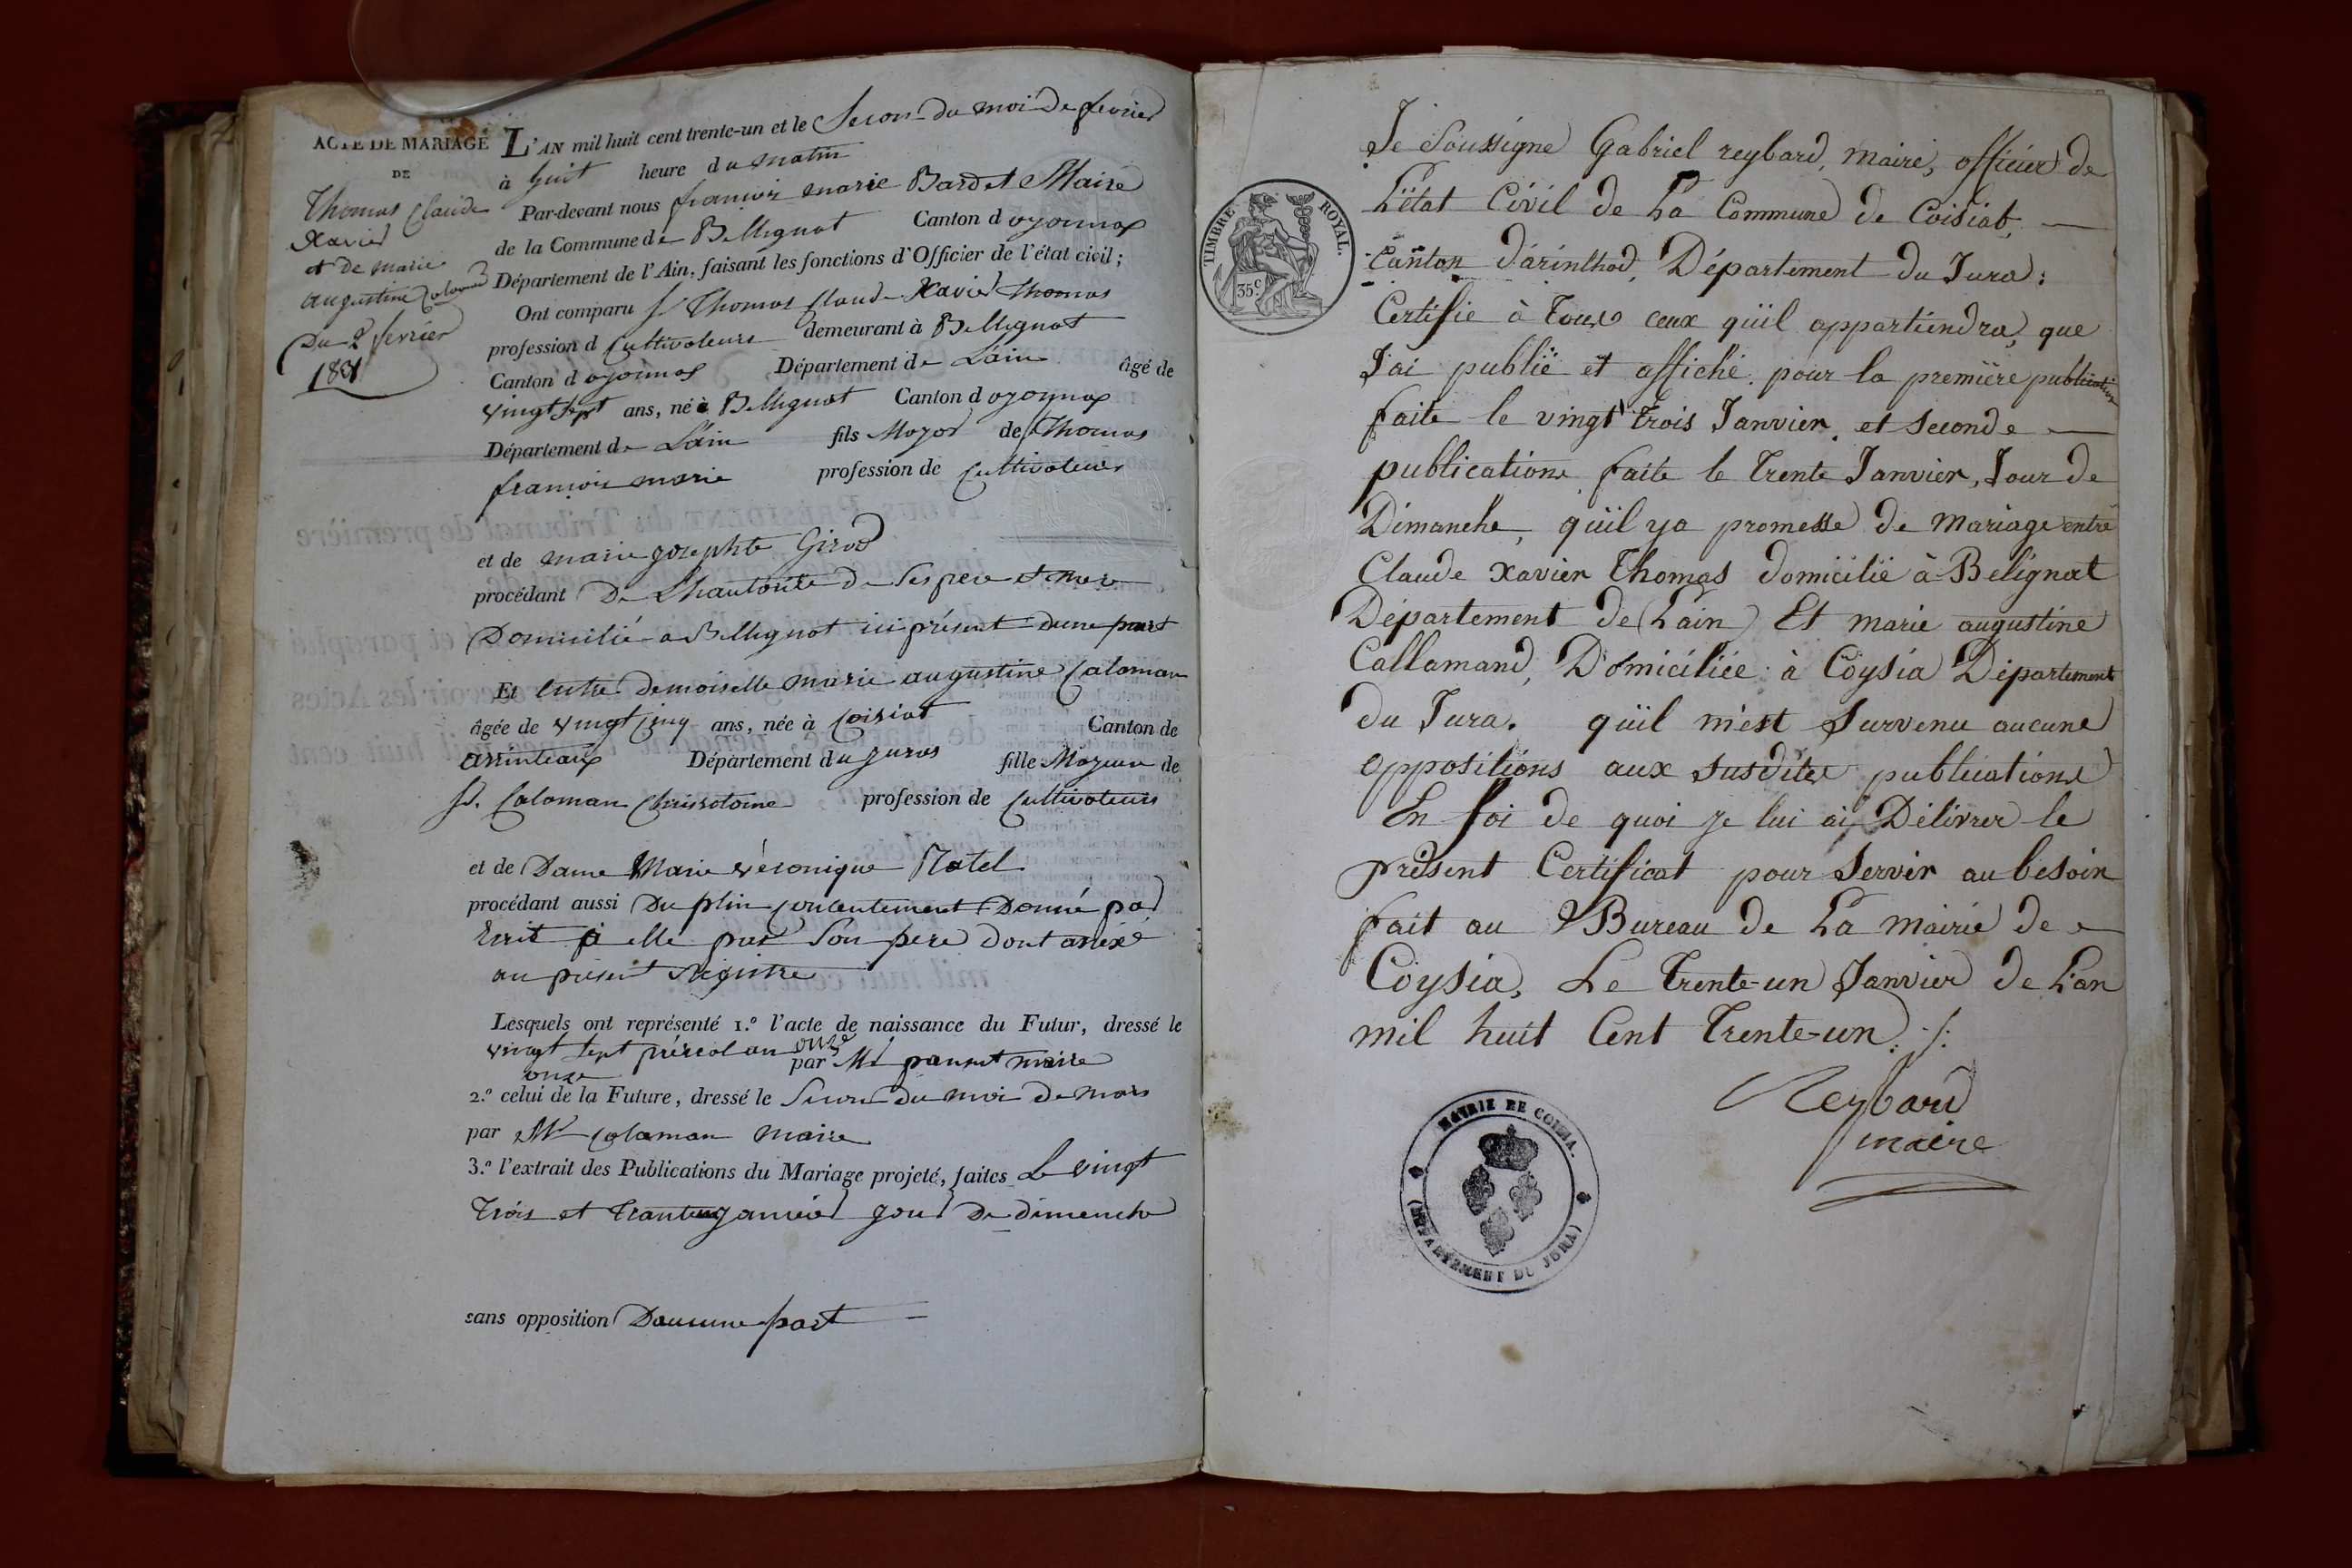 ACTE DE MARIAGE
DE
Thomas Claude
Xavier
et de marie
augustine Caloman
Du 2 fevrier
1831
L'AN mil huit cent trente-un et le Secon du moi de fevrier
à huit heure du matin
Par-devant nous françois marie Bardet Maire
de la Commune de Bellignat Canton d oyonnax
Département de l'Ain, faisant les fonctions d'Officier de l'état civil;
Ont comparu Sr Thomas Claude Xavier Thomas
profession d Cultivateurs demeurant à Bellignat
Canton d oyonnax Département de Lain âgé de
vingt sept ans, né à Bellignat Canton d oyonnax
Département de Lain fils Mojor de Thomas
françois marie profession de Cultivateur
et de marie josephte Girod
procédant De Lhautorité de Ses pere et mere
Domicilié a Bellignat ici présent dune part
Et Entre demoiselle marie augustine Caloman
âgée de vingt cinq ans, née à Coisiat Canton de
arinteaux Département du juras fille Mojeur de
Sr. Caloman Chrisotome profession de Cultivateur
et de Dame Marie véronique
procédant aussi Du plin concentement Donné par
Ecrit a elle par Son pere dont anéxé
au présent Régistre
Lesquels ont représenté 1.º l'acte de naissance du Futur, dressé le
vingt Sept préréol an onze
onze par Mr panset maire
2.º celui de la Future, dressé le Secon du moi de mars
par Mr Caloman maire
3.º l'extrait des Publications du Mariage projeté, faites Le vingt
Trois et Trante janvier jour De dimenche
sans opposition Daucune part
TIMBRE ROYAL.
35 c
Je Soussigne Gabriel reybard, maire, officier de
L'état Civil de La Commune de Coisiat,
Canton d'arinthod, Département du Jura:
Certifie à Tous ceux qüil appartiendra, que
J'ai publié et affiché pour la première publication
faite le vingt Trois Janvier, et seconde
publications faite le Trente Janvier, Jour de
Dimanche, qüil ya promesse de mariage entre
Claude Xavier Thomas domicilié à Belignat
Département de L'ain Et marie augustine
Callamand, Domiciliée à Coysia Département
du Jura. qüil n'est survenu aucune
oppositions aux susdites publications
En foi de quoi je lui ai Délivrer le
présent Certificat pour Servir au besoin
fait au Bureau de La mairie de
Coysia, Le Trente-un Janvier de L'an
mil huit Cent Trente-un ./.
Reybard
maire
MAIRIE DE COISIA.
(DÉPARTEMENT DU JURA)